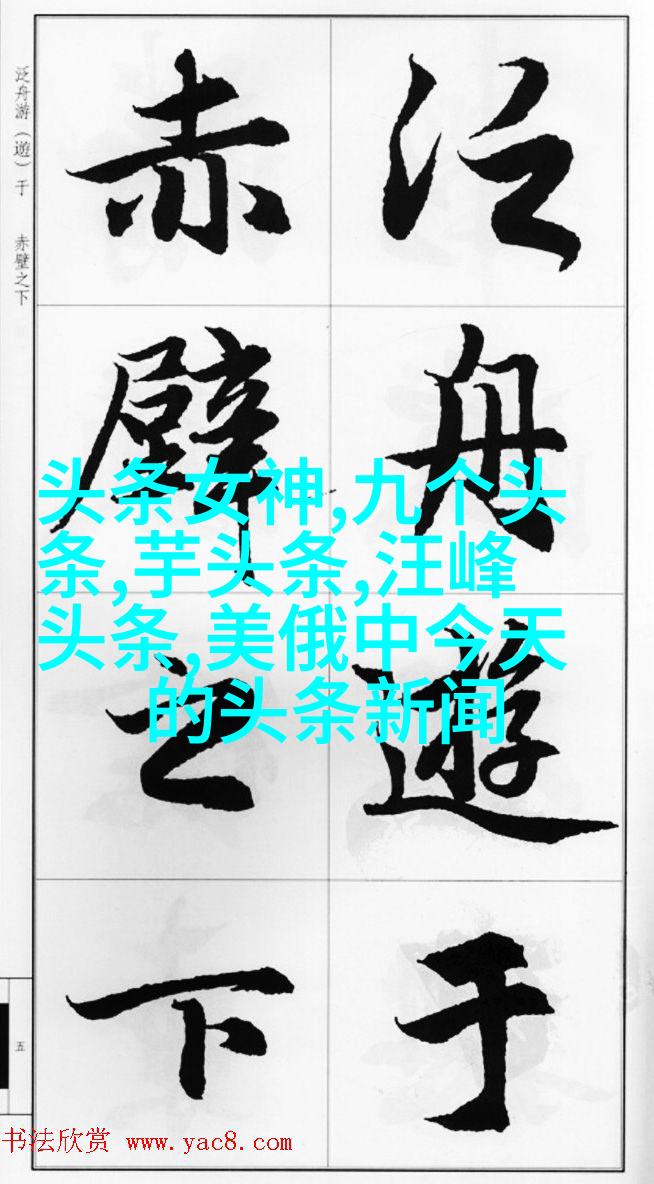 泛舟游（遊）于　赤壁之下
泛舟遊于
赤壁之下
头条女神,九个头
条,芋头条,汪峰
头条,美俄中今天
的头条新闻
五
书法欣赏 www.yac8.com